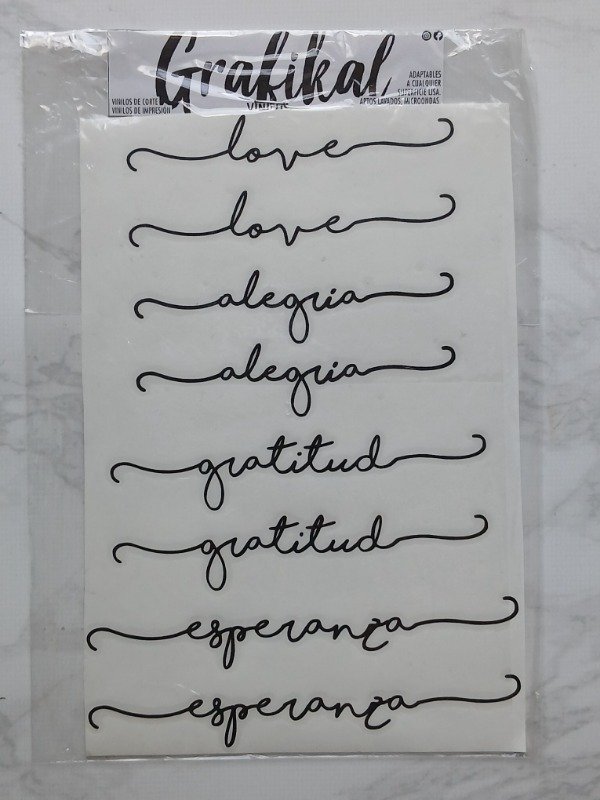 Grafikal
VINILOS
VINILOS DE CORTE
VINILOS DE IMPRESIÓN
ADAPTABLES
A CUALQUIER
SUPERFICIE LISA.
APTOS LAVADOS, MICROONDAS.
love
love
alegria
alegria
gratitud
gratitud
esperanza
esperanza